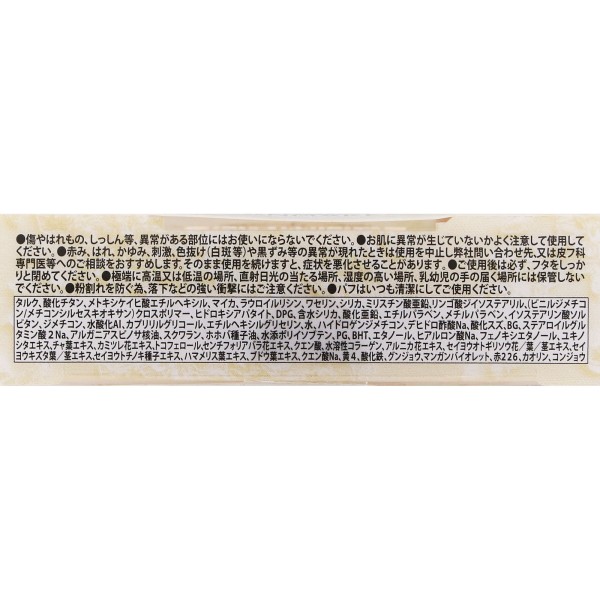 ●傷やはれもの、しっしん等、異常がある部位にはお使いにならないでください。●お肌に異常が生じていないかよく注意して使用して
ください。●赤み、はれ、かゆみ、刺激、色抜け(白斑等)や黒ずみ等の異常が現れたときは使用を中止し弊社問い合わせ先、又は皮フ科
専門医等へのご相談をおすすめします。そのまま使用を続けますと、症状を悪化させることがあります。●ご使用後は必ず、フタをしっか
りと閉めてください。●極端に高温又は低温の場所、直射日光の当たる場所、湿度の高い場所、乳幼児の手の届く場所には保管しない
でください。●粉割れを防ぐ為、落下などの強い衝撃にはご注意ください。●パフはいつも清潔にしてご使用ください。
タルク、酸化チタン、メトキシケイヒ酸エチルヘキシル、マイカ、ラウロイルリシン、ワセリン、シリカ、ミリスチン酸亜鉛、リンゴ酸ジイソステアリル、(ビニルジメチコ
ン/メチコンシルセスキオキサン)クロスポリマー、ヒドロキシアパタイト、DPG、含水シリカ、酸化亜鉛、エチルパラベン、メチルパラベン、イソステアリン酸ソル
ビタン、ジメチコン、水酸化Al、カプリリルグリコール、エチルヘキシルグリセリン、水、ハイドロゲンジメチコン、デヒドロ酢酸Na、酸化スズ、BG、ステアロイルグル
タミン酸2Na、アルガニアスピノサ核油、スクワラン、ホホバ種子油、水添ポリイソブテン、PG、BHT、エタノール、ヒアルロン酸Na、フェノキシエタノール、ユキノ
シタエキス、チャ葉エキス、カミツレ花エキス、トコフェロール、センチフォリアバラ花エキス、クエン酸、水溶性コラーゲン、アルニカ花エキス、セイヨウオトギリソウ花／葉／茎エキス、セイ
ヨウキズタ葉／茎エキス、セイヨウトチノキ種子エキス、ハマメリス葉エキス、ブドウ葉エキス、クエン酸Na、黄4、酸化鉄、グンジョウ、マンガンバイオレット、赤226、カオリン、コンジョウ